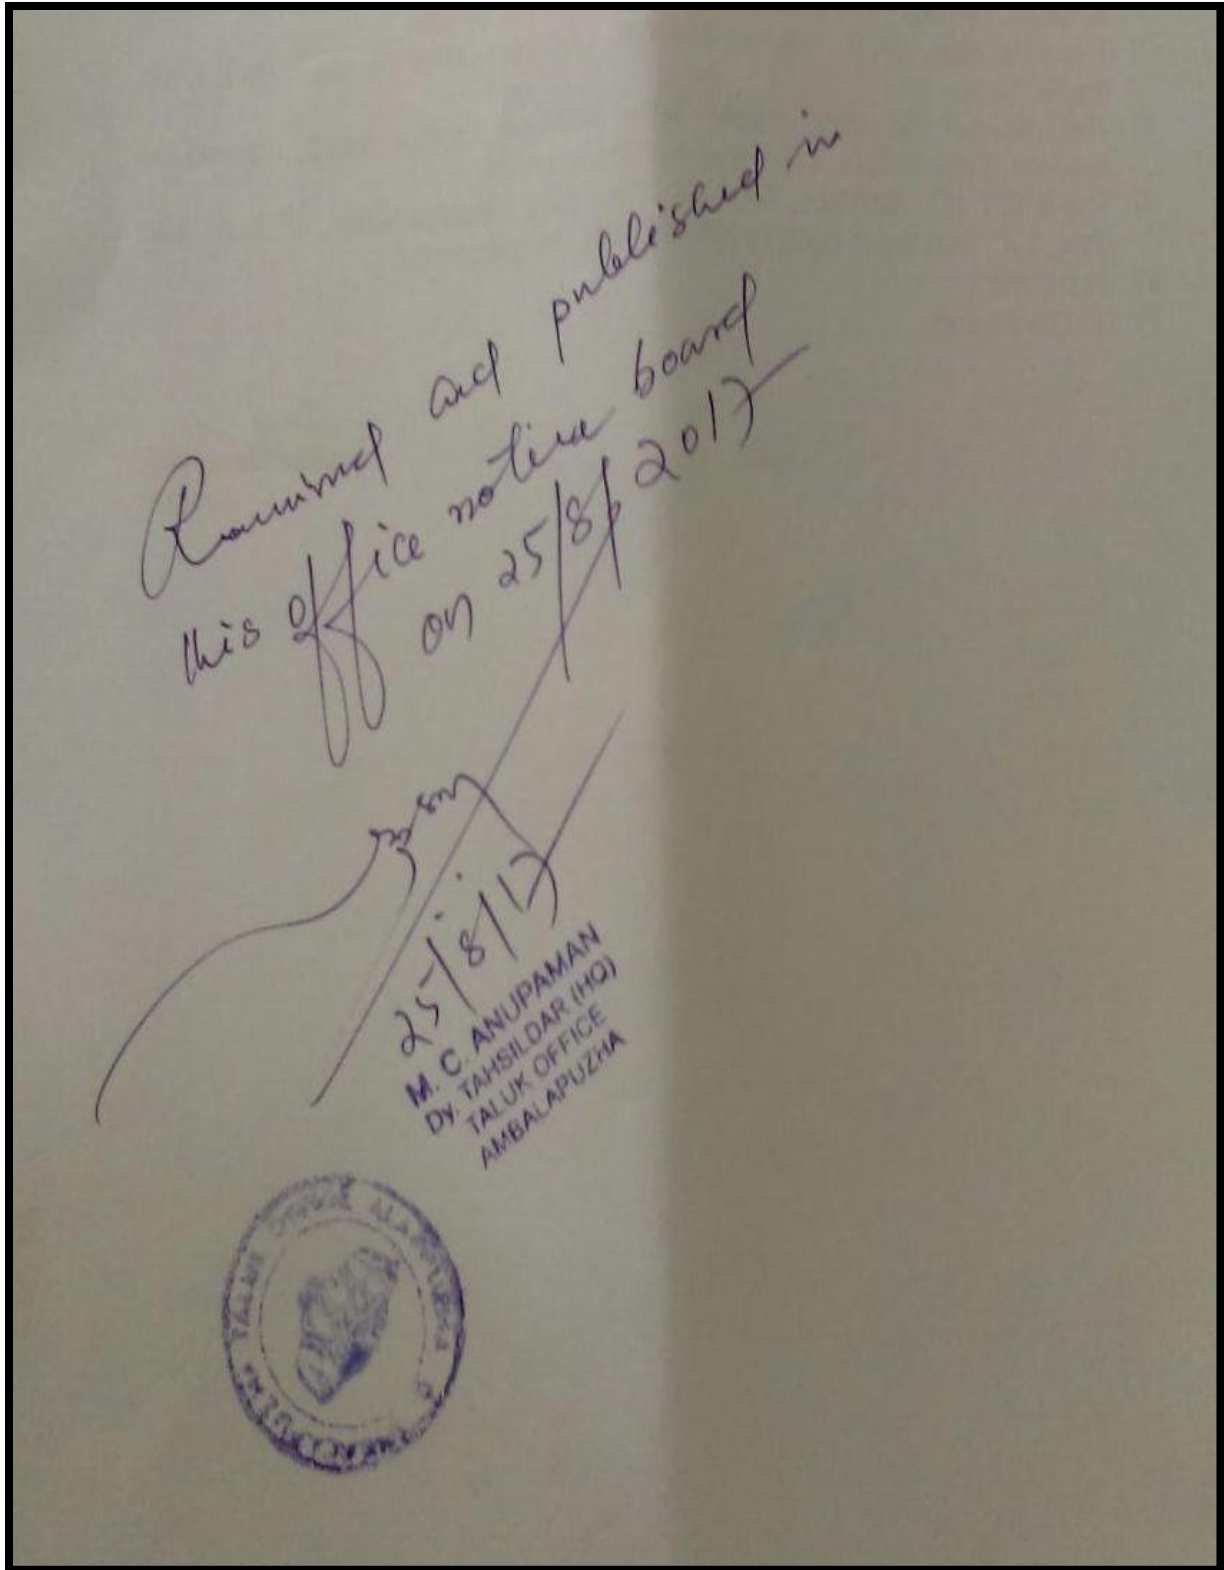 Received and published in
this office notice board
on 25/8/2017
25/8/17
M. C. ANUPAMAN
Dy. TAHSILDAR (HQ)
TALUK OFFICE
AMBALAPUZHA